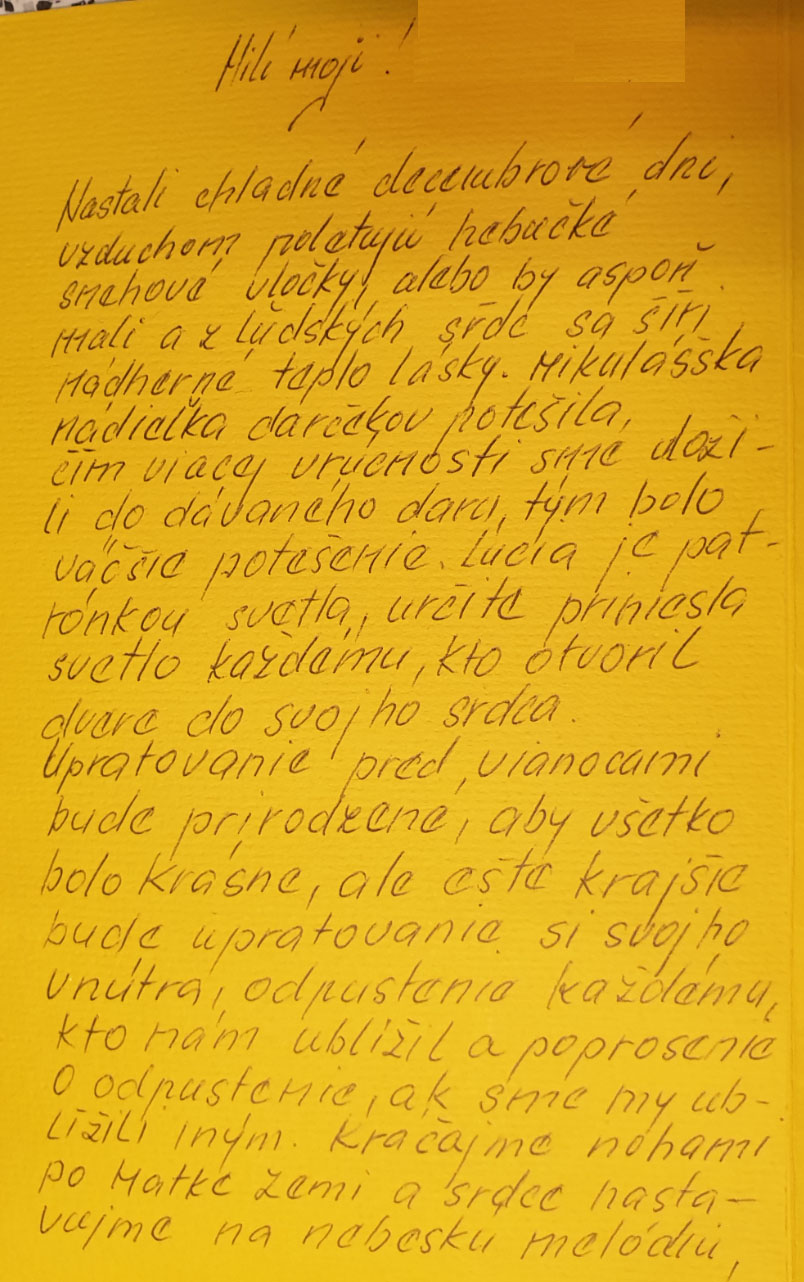 Milí moji!
Nastali chladné decembrové dni,
vzduchom poletujú hebučké
snehové vločky, alebo by aspoň
mali a z ľudských sŕdc sa šíri
nádherné teplo lásky. Mikulášska
nádielka darčekov potešila,
čím viacej vrúcnosti sme vloži-
li do dávaného daru, tým bolo
väčšie potešenie. Lucia je pat-
rónkou svetla, určite priniesla
svetlo každému, kto otvoril
dvere do svojho srdca.
Upratovanie pred vianocami
bude prirodzené, aby všetko
bolo krásne, ale ešte krajšie
bude upratovanie si svojho
vnútra, odpustenie každému,
kto nám ublížil a poprosenie
o odpustenie, ak sme my ub-
lížili iným. Kračajme nohami
po Matke Zemi a srdce nasta-
vujme na nebeskú melódiu,